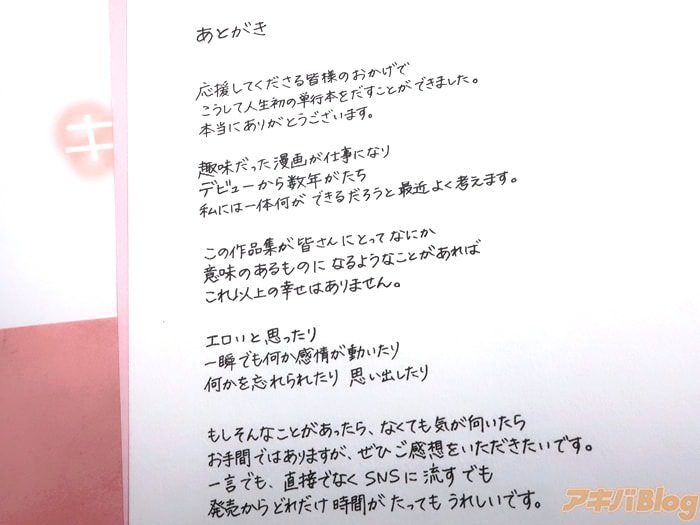 あとがき
応援してくださる皆様のおかげで
こうして人生初の単行本をだすことができました。
本当にありがとうございます。
趣味だった漫画が仕事になり
デビューから数年がたち
私には一体何ができるだろうと最近よく考えます。
この作品集が皆さんにとってなにか
意味のあるものになるようなことがあれば
これ以上の幸せはありません。
エロいと思ったり
一瞬でも何か感情が動いたり
何かを忘れられたり 思い出したり
もしそんなことがあったら、なくても気が向いたら
お手間ではありますが、ぜひご感想をいただきたいです。
一言でも、直接でなくSNSに流すでも
発売からどれだけ時間がたってもうれしいです。
キ
アキバBlog